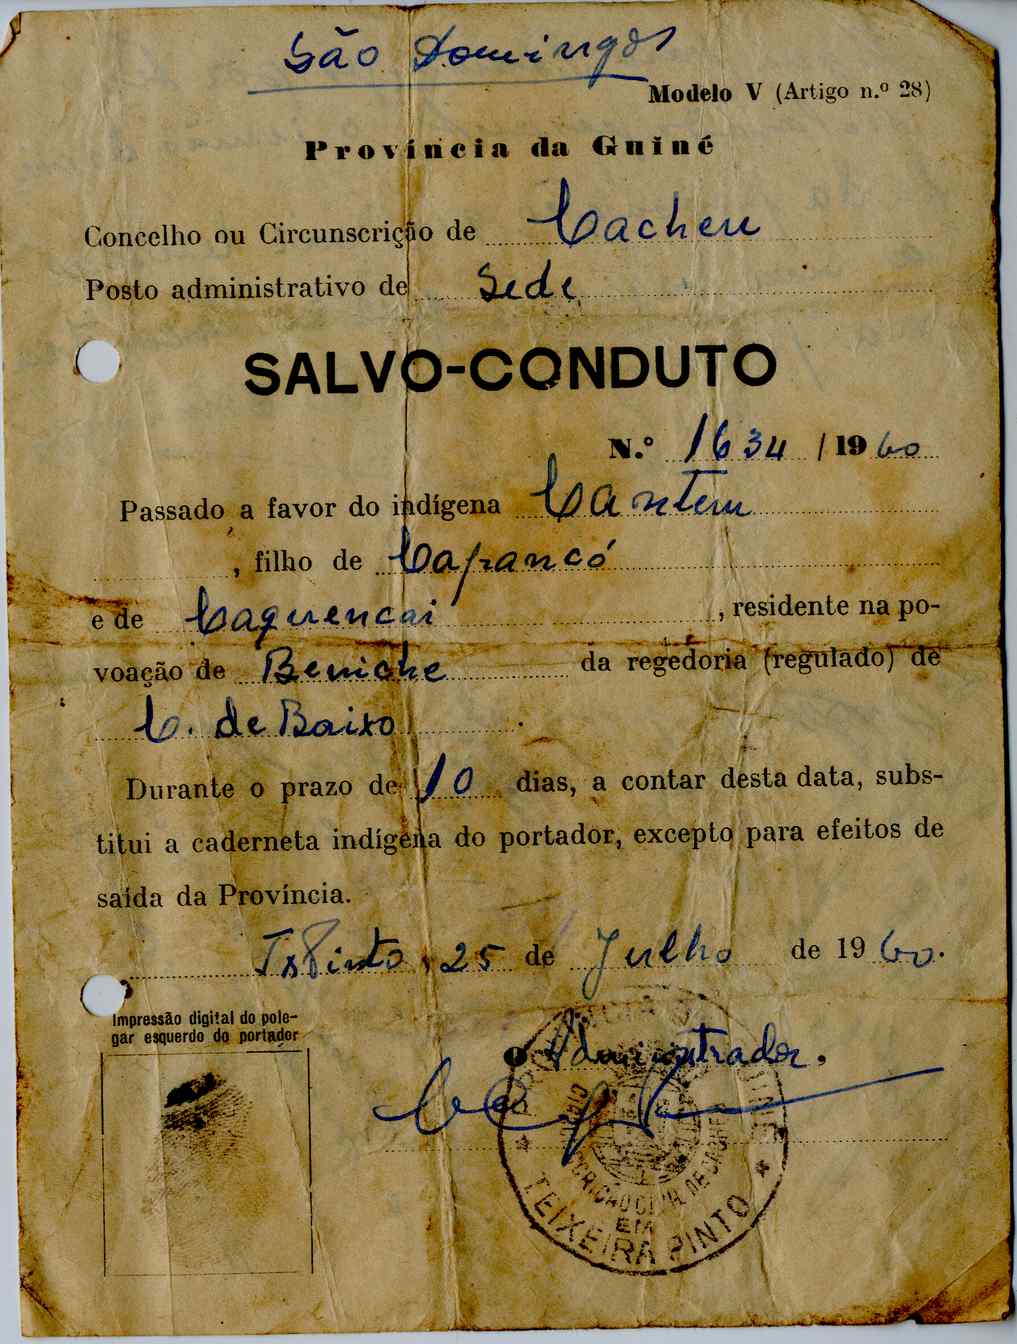 São Domingos
Modelo V (Artigo n.º 28)
Província da Guiné
Concelho ou Circunscrição de Cacheu
Posto administrativo de Sede
SALVO-CONDUTO
N.º 1634 / 1960
Passado a favor do indígena Cantem
, filho de Cafrancó
e de Caquencai , residente na po-
voação de Beniche da regedoria (regulado) de
C. de Baixo
Durante o prazo de 10 dias, a contar desta data, subs-
titui a caderneta indígena do portador, excepto para efeitos de
saída da Província.
Tx Pinto, 25 de Julho de 1960.
Impressão digital do pole-
gar esquerdo do portador
O Administrador.
EM
TEIXEIRA PINTO